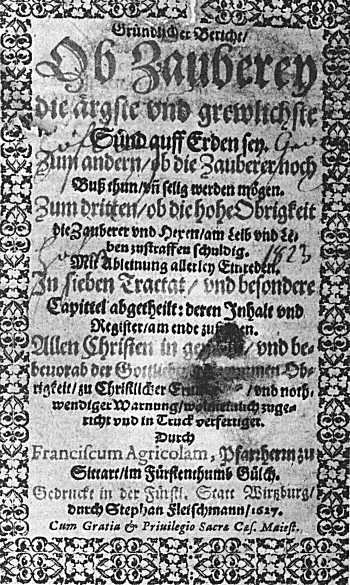 Gründlicher Bericht/
Ob Zauberey
die ärgste vnd grewlichste
Sünd auff Erden sey.
Zum andern/ob die Zauberer/noch
Buß thun/vñ selig werden mögen.
Zum dritten/ob die hohe Obrigkeit
die Zauberer vnd Hexen/am Leib vnd Le-
ben zustraffen schuldig.
1823
Mit Ableinung allerley Einreden.
In sieben Tractat/vnd besondere
Capittel abgetheilt: deren Inhalt vnd
Register/am ende zufinden.
Allen Christen in /vnd be-
beuorab der Ob-
rigkeit/zu Christlicher /vnd noth-
wendiger Warnung/ zuge-
richt vnd in Truck verfertiget.
Durch
Franciscum Agricolam, Pfarrherrn zu
Sittart/im Fürstenthumb Gülch.
Gedruckt in der Fürstl. Statt Wirtzburg/
durch Stephan Fleischmann/1627.
Cum Gratia & Priuilegio Sacræ Cæs. Maiest.